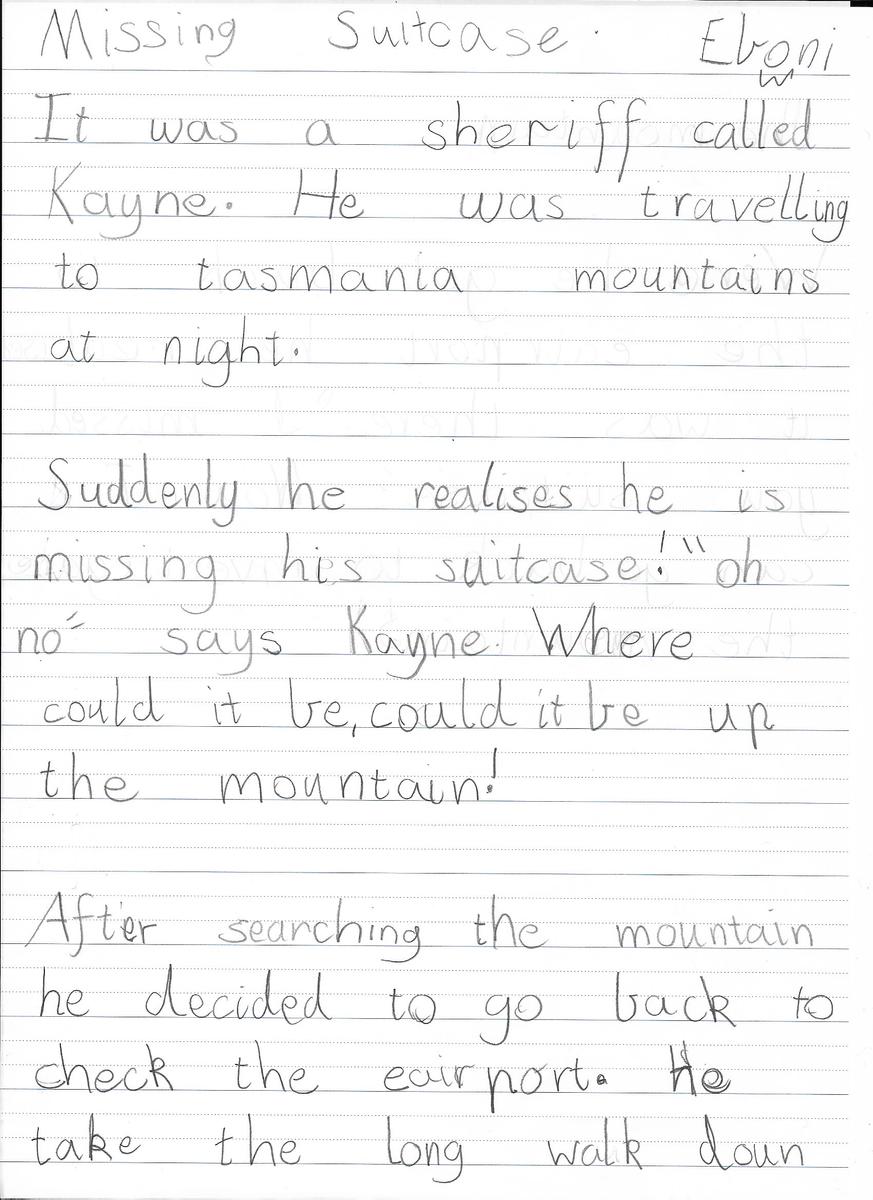 Missing Suitcase. Eboni
w
It was a sheriff called
Kayne. He was travelling
to tasmania mountains
at night.
Suddenly he realises he is
missing his suitcase! "oh
no" says Kayne. Where
could it be, could it be up
the mountain!
After searching the mountain
he decided to go back to
check the eairport. He
take the long walk doun